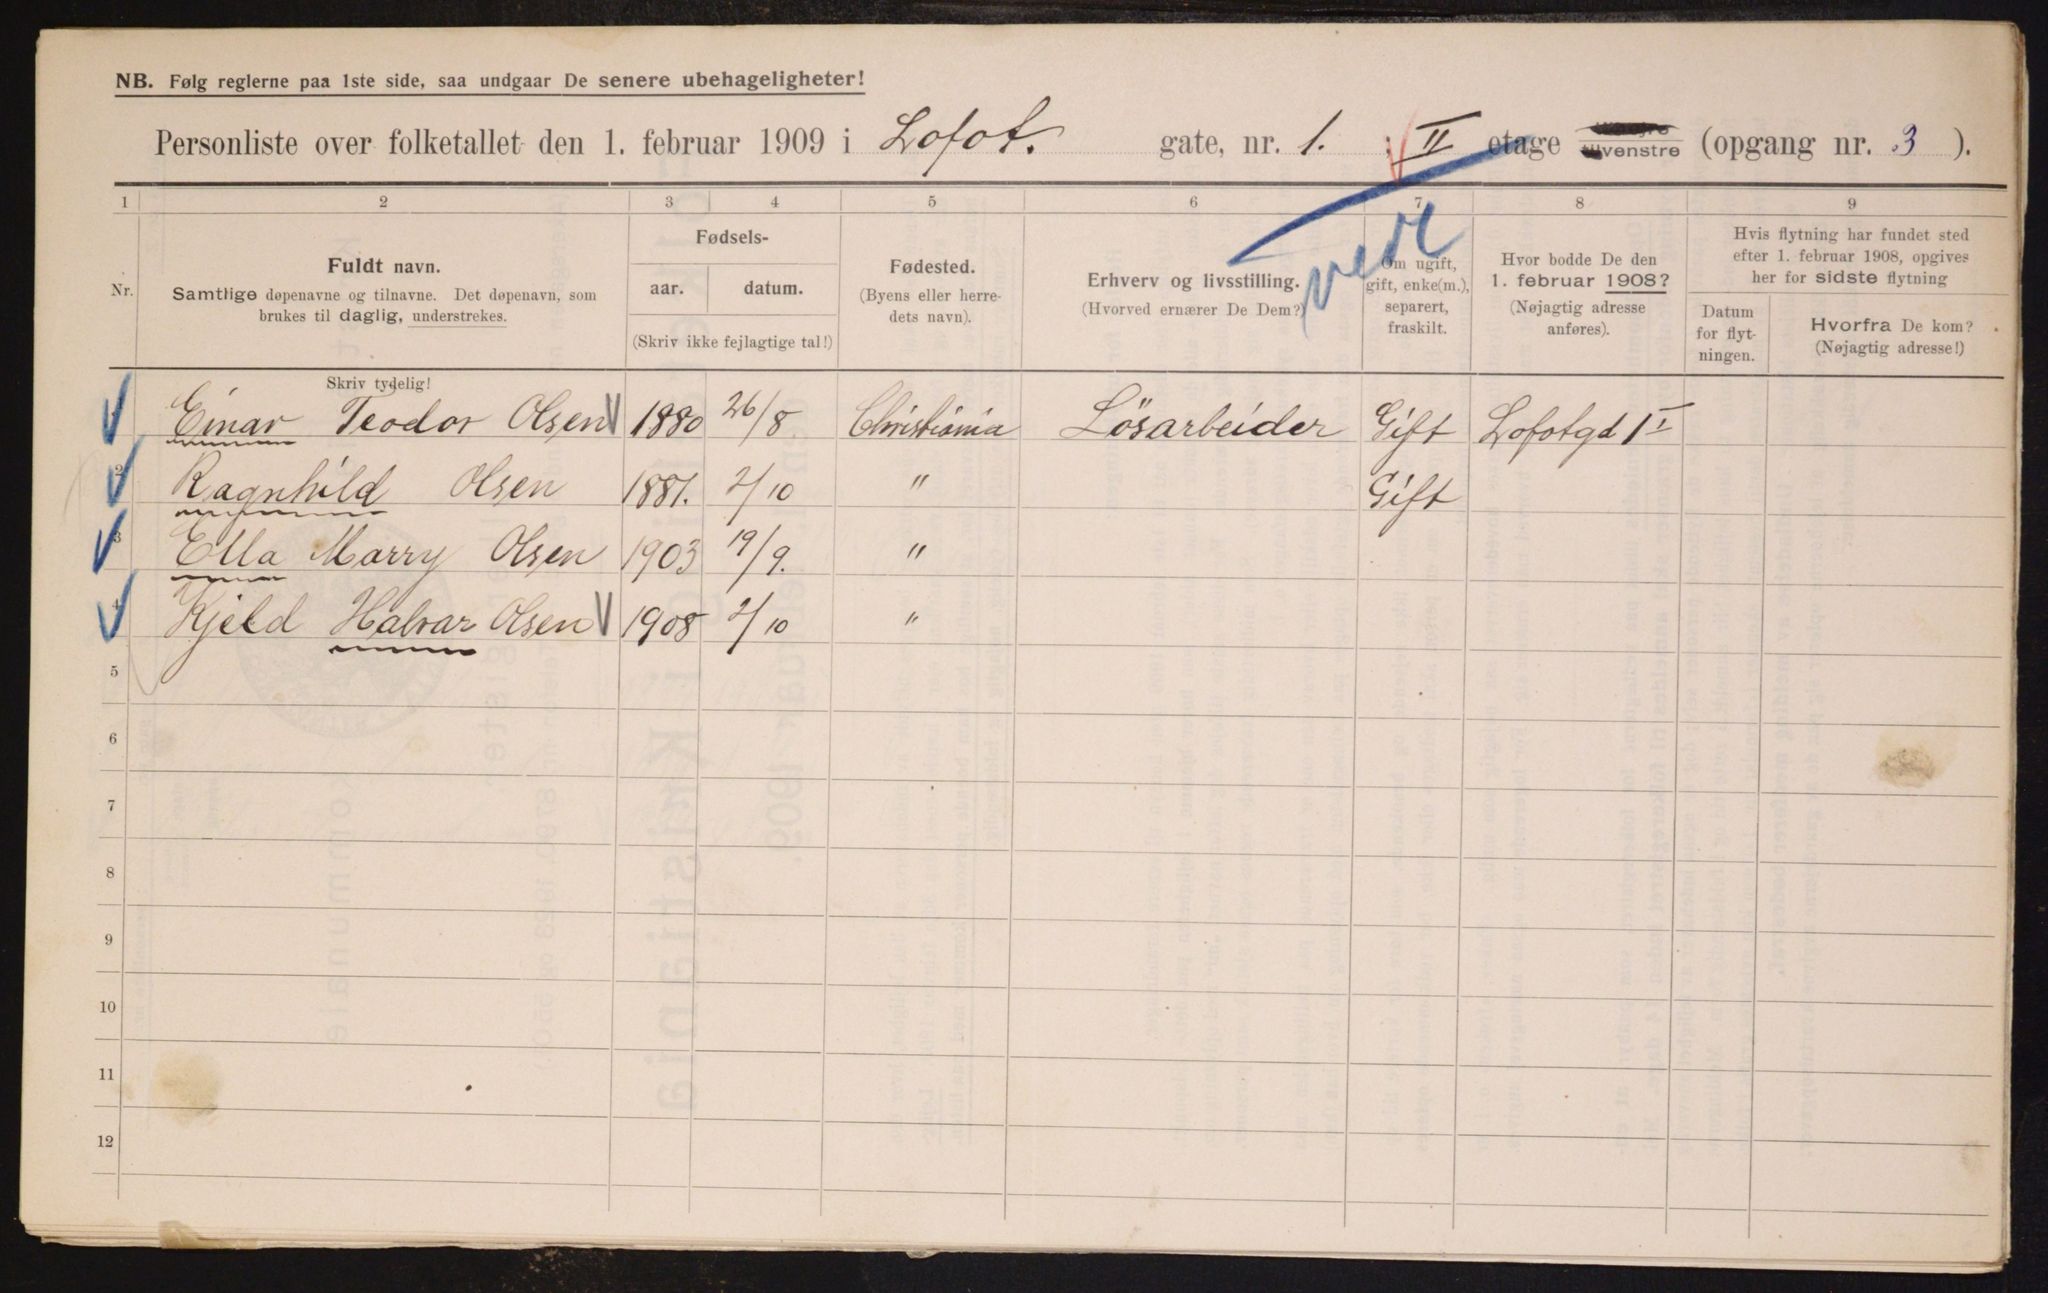 NB. Følg reglerne paa 1ste side, saa undgaar De senere ubehageligheter!
Personliste over folketallet den 1. februar 1909 i Lofot. gate, nr. 1. : II etage tilvenstre (opgang nr. 3 ).
1 2 3 4 5 6 7 8 9
Nr.
Fuldt navn.
Samtlige døpenavne og tilnavne. Det døpenavn, som
brukes til daglig, understrekes.
Fødsels-
aar. datum.
(Skriv ikke fejlagtige tal!)
Fødested.
(Byens eller herre-
dets navn).
Erhverv og livsstilling.
(Hvorved ernærer De Dem?)
Om ugift,
gift, enke(m.),
separert,
fraskilt.
Hvor bodde De den
1. februar 1908?
(Nøjagtig adresse
anføres).
Hvis flytning har fundet sted
efter 1. februar 1908, opgives
her for sidste flytning
Datum
for flyt-
ningen.
Hvorfra De kom?
(Nøjagtig adresse!)
Skriv tydelig!
Einar Teodor Olsen 1880 26/8 Christiania Lösarbeider Gift Lofotgd 1 I
2 Ragnhild Olsen 1881. 2/10 " Gift
3 Ella Marry Olsen 1903 19/9. "
4 Kjeld Halvar Olsen 1908 2/10 "
5
6
7
8
9
10
11
12